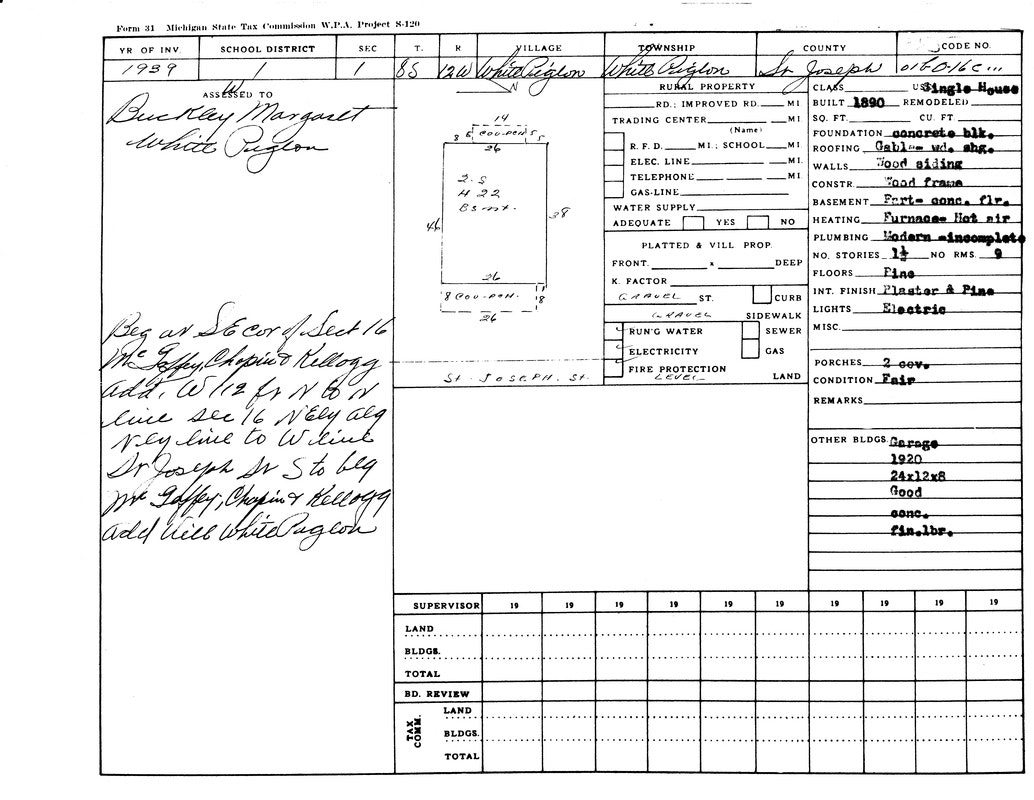 Form 31 Michigan State Tax Commission W.P.A. Project S-120
YR OF INV. SCHOOL DISTRICT SEC T. R VILLAGE TOWNSHIP COUNTY CODE NO.
1939 1 1 8S 12W White Pigeon White Pigeon St. Joseph
ASSESSED TO
Buckley Margaret
White Pigeon
N
14
8 6 COV-PCH. 5 5
26
2.S
H 22
Bsmt.
46
38
26
8 COV-PCH. 8
26
St. JOSEPH. St.
Beg at SE cor of Sect 16
McGaffey, Chapin & Kellogg
Add, W 112 ft N to N
line sec 16 NEly alg
N'ly line to W line
St Joseph St S to beg
McGaffey, Chapin & Kellogg
Add Vill White Pigeon
RURAL PROPERTY
RD.; IMPROVED RD. MI
TRADING CENTER MI.
(Name)
R. F. D. MI.; SCHOOL MI.
ELEC. LINE MI.
TELEPHONE MI.
GAS-LINE
WATER SUPPLY
ADEQUATE YES NO
PLATTED & VILL PROP.
FRONT. x DEEP
K. FACTOR
GRAVEL ST. CURB
GRAVEL SIDEWALK
RUN'G WATER SEWER
ELECTRICITY GAS
FIRE PROTECTION
LEVEL LAND
CLASS USE Single House
BUILT 1890 REMODELED
SQ. FT. CU. FT.
FOUNDATION concrete blk.
ROOFING Gable- wd. shg.
WALLS Wood siding
CONSTR. Wood frame
BASEMENT Part- conc. flr.
HEATING Furnace- Hot air
PLUMBING Modern -incomplete
NO. STORIES 1½ NO RMS. 9
FLOORS Pine
INT. FINISH Plaster & Pine
LIGHTS Electric
MISC.
PORCHES 2 cov.
CONDITION Fair
REMARKS
OTHER BLDGS. Garage
1920
24x12x8
Good
conc.
fin.lbr.
SUPERVISOR 19 19 19 19 19 19 19 19 19 19
LAND
BLDGS.
TOTAL
BD. REVIEW
TAX COMM.
LAND
BLDGS.
TOTAL